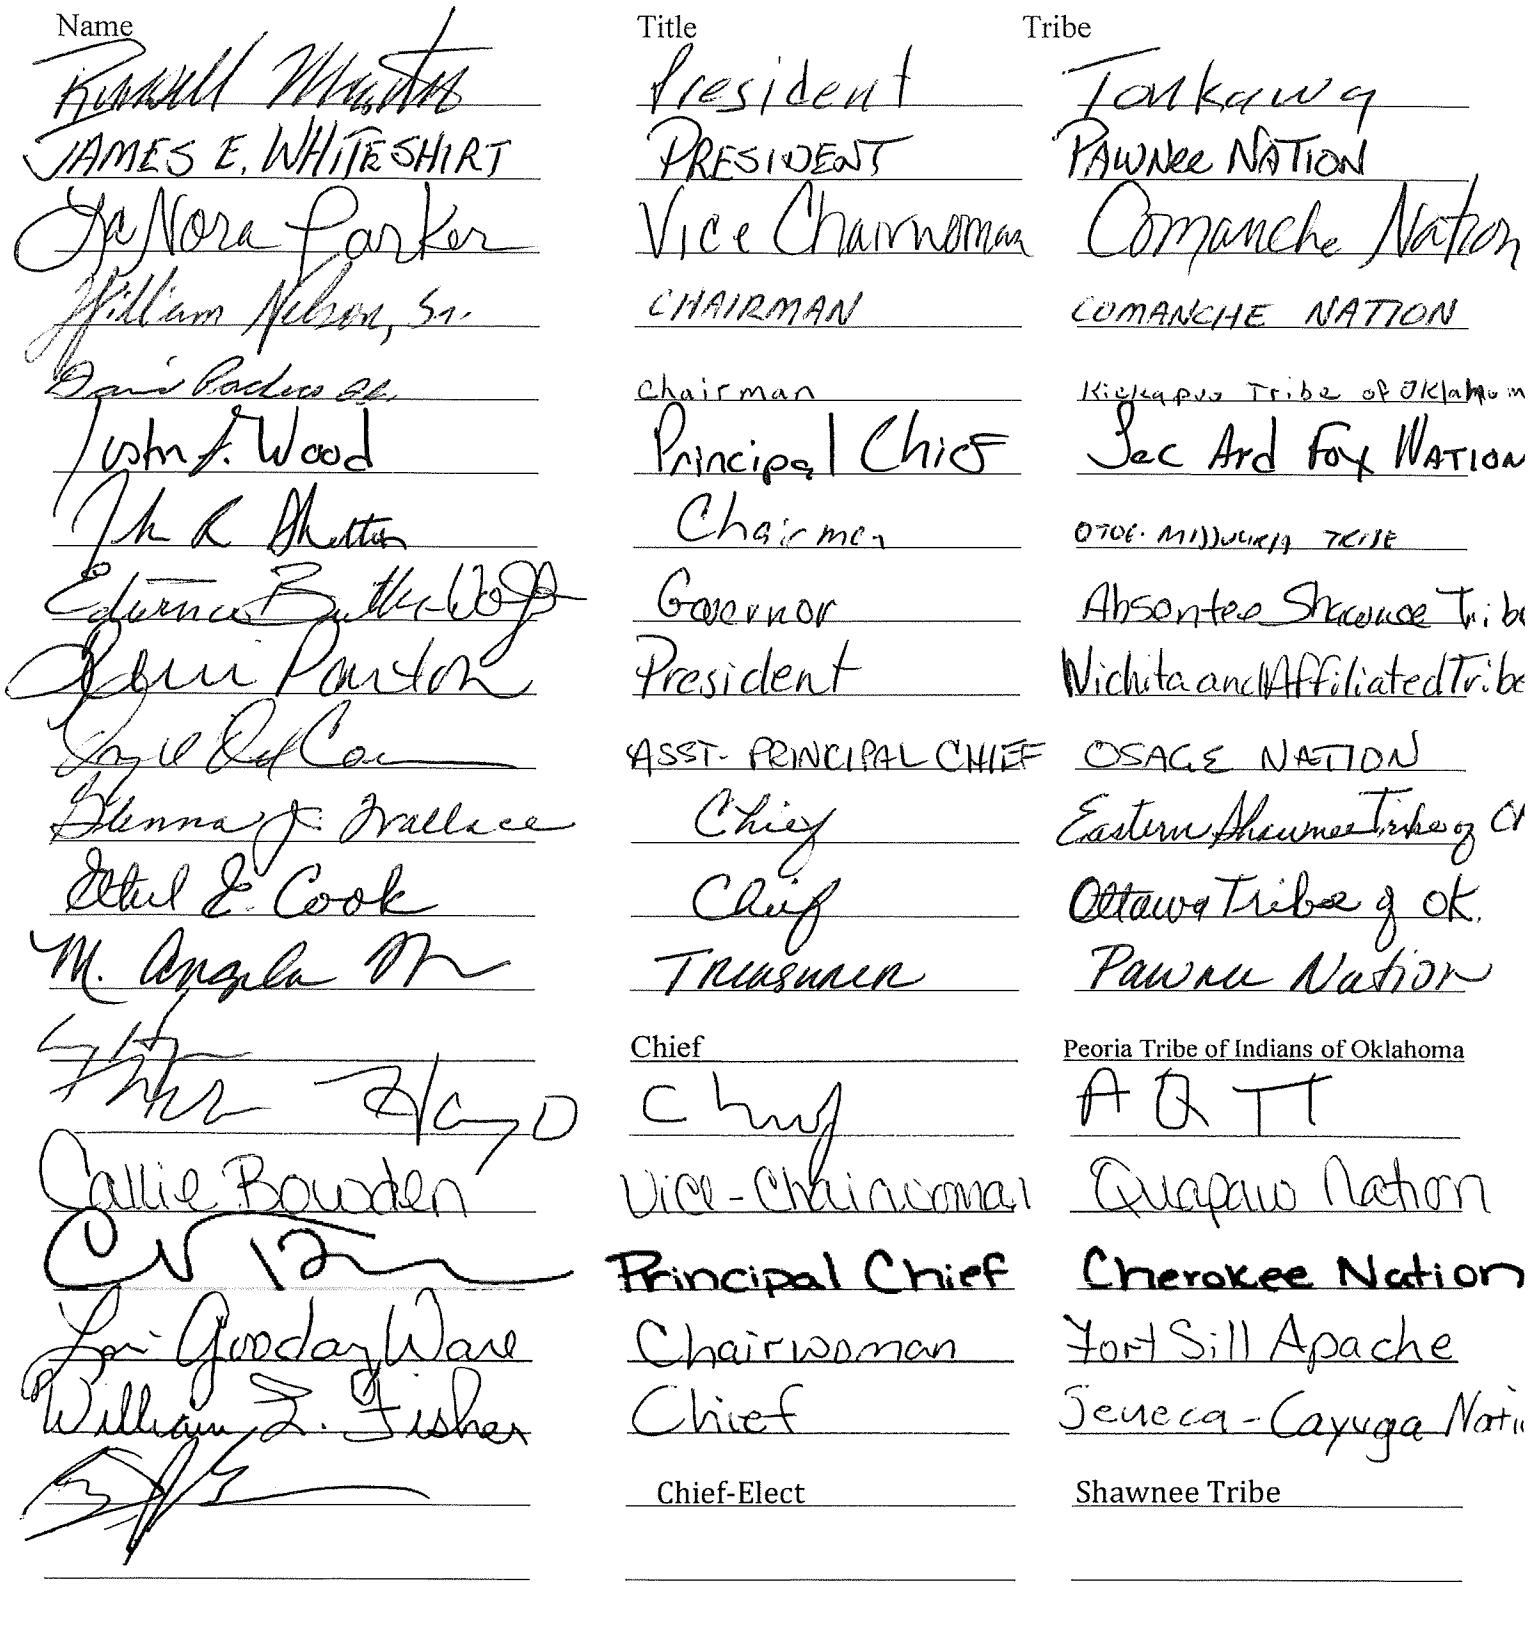 Name Title Tribe
Russell Martin President Tonkawa
JAMES E. WHITESHIRT PRESIDENT PAWNee NATION
LaNora Parker Vice Chairwoman Comanche Nation
William Nelson, Sr. CHAIRMAN COMANCHE NATION
David Pacheco Jr. Chairman Kickapoo Tribe of Oklahom
Justin F. Wood Principal Chief Sac And Fox NATION
John R Shotton Chairman OTOE-MISSOURIA TRIBE
Edwina Butler-Wolfe Governor Absentee Shawnee Tribe
Terri Parton President Wichita and Affiliated Tribe
ASST. PRINCIPAL CHIEF OSAGE NATION
Glenna J. Wallace Chief Eastern Shawnee Tribe of
Ethel E. Cook Chief Ottawa Tribe of OK.
M. Angela Treasurer Pawnee Nation
Chief Peoria Tribe of Indians of Oklahoma
Chief AQTT
Callie Bowden Vice-Chairwoman Quapaw Nation
Principal Chief Cherokee Nation
Lori Gooday Ware Chairwoman Fort Sill Apache
William L. Fisher Chief Seneca-Cayuga Nati
Chief-Elect Shawnee Tribe